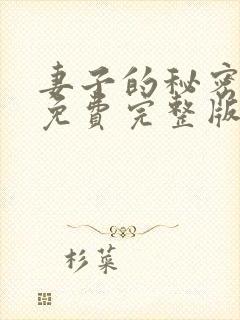 妻子的秘密
免費完整版
杉菜